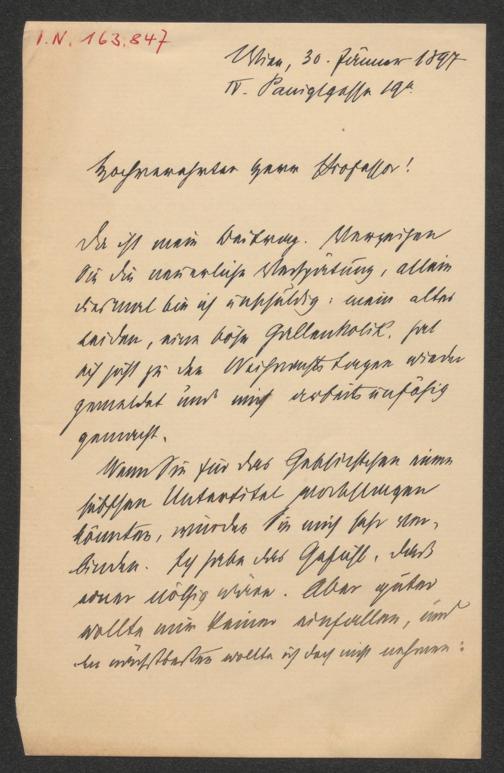 I.N. 163.847
Wien, 30. Jänner 1897
IV. Paniglgasse 19a
Hochverehrter Herr Professor!
Da ist mein Beitrag. Verzeihen
Sie die neuerliche Verspätung, allein
diesmal bin ich unschuldig: mein altes
Leiden, eine böse Gallenkolik, hat
sich just zu den Weihnachtstagen wieder
gemeldet und mich arbeitsunfähig
gemacht.
Wenn Sie für das Gedichtchen einen
hübschen Untertitel vorschlagen
könnten, würden Sie mich sehr ver-
binden. Ich habe das Gefühl, daß
einer nötig wäre. Aber guter
wollte mir keiner einfallen, und
den nächstbesten wollte ich doch nicht nehmen: